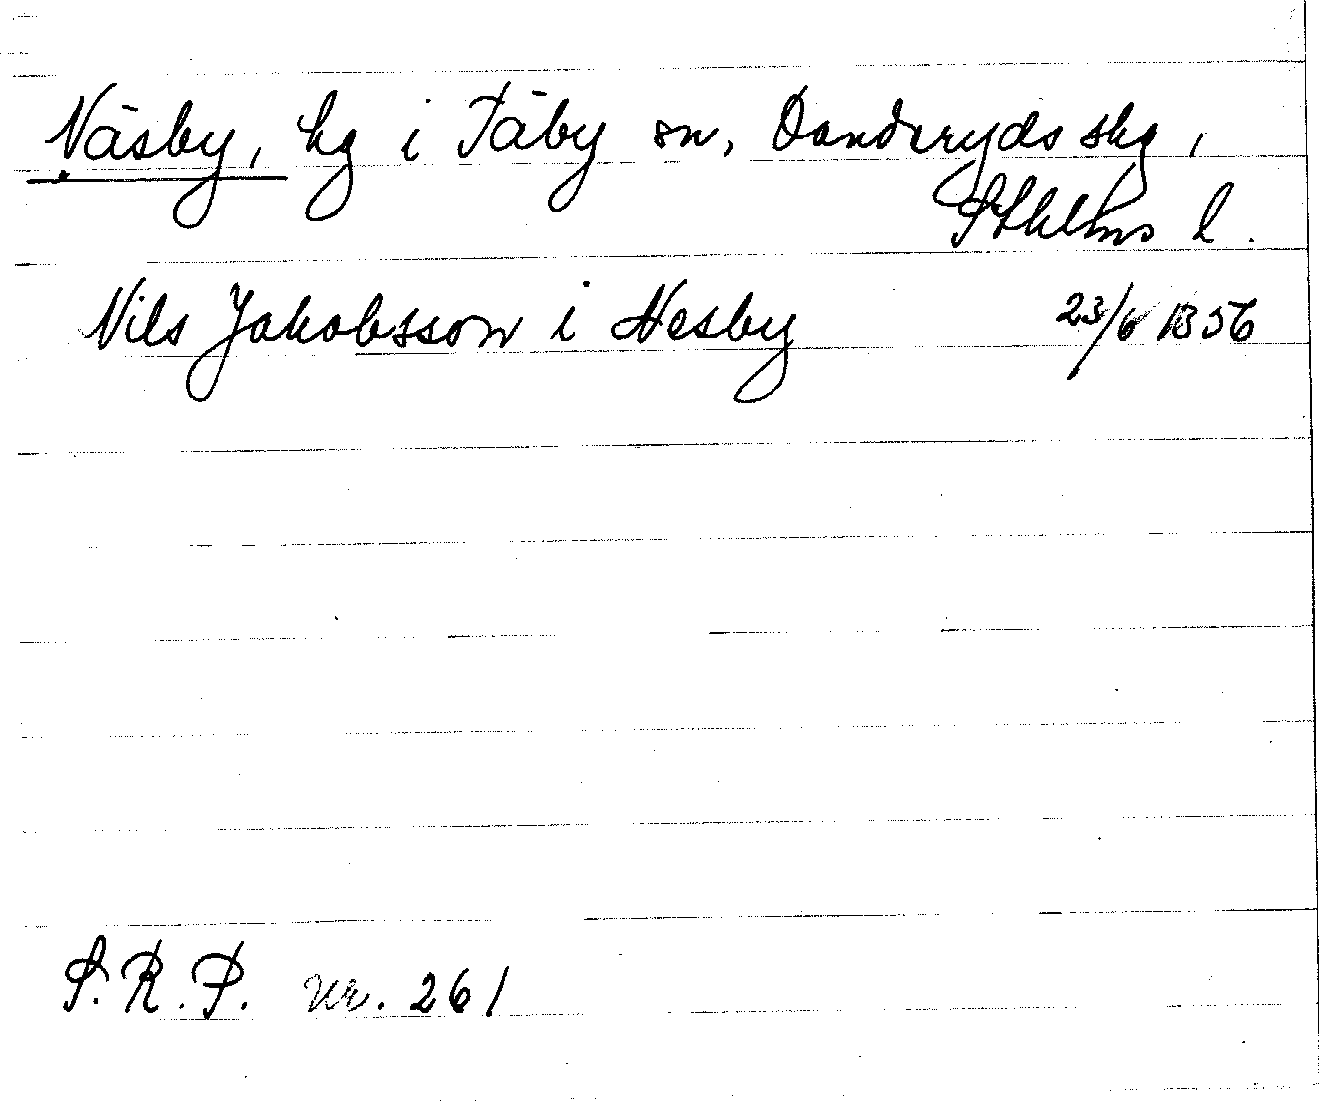 Näsby, hg i Täby sn, Danderyds skg,
Sthlms l.
Nils Jakobsson i Nesby 23/6 1356
S.R.P. nr. 261